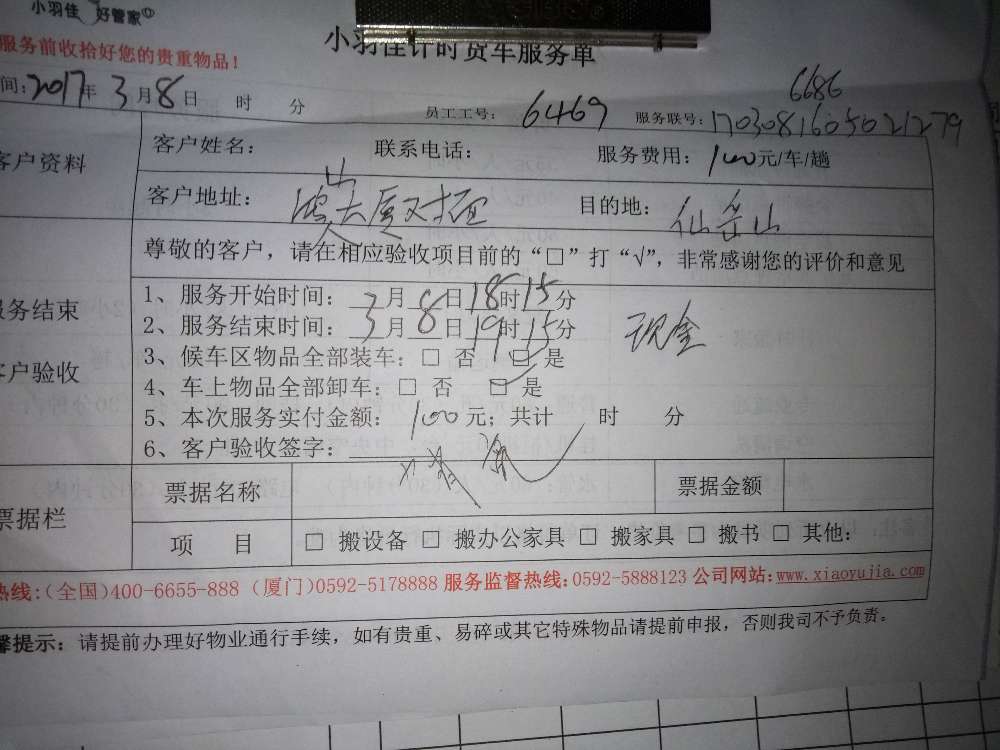 小羽佳 好管家
小羽佳计时货车服务单
服务前收拾好您的贵重物品！
间：2017年 3月8日 时 分 员工工号：6469 服务联号：1703081605021279
6686
客户资料 客户姓名： 联系电话： 服务费用：100元/车/趟
客户地址： 大厦对面 目的地：仙岳山
尊敬的客户，请在相应验收项目前的“□”打“√”，非常感谢您的评价和意见
服务结束
客户验收
1、服务开始时间：3月8日18时15分
2、服务结束时间：3月8日19时15分 现金
3、候车区物品全部装车：□ 否 ☑ 是
4、车上物品全部卸车：□ 否 ☑ 是
5、本次服务实付金额：100元；共计 时 分
6、客户验收签字：
票据栏 票据名称 票据金额
项 目 □ 搬设备 □ 搬办公家具 □ 搬家具 □ 搬书 □ 其他：
热线：(全国)400-6655-888 (厦门)0592-5178888 服务监督热线：0592-5888123 公司网站：www.xiaoyujia.com
馨提示：请提前办理好物业通行手续，如有贵重、易碎或其它特殊物品请提前申报，否则我司不予负责。